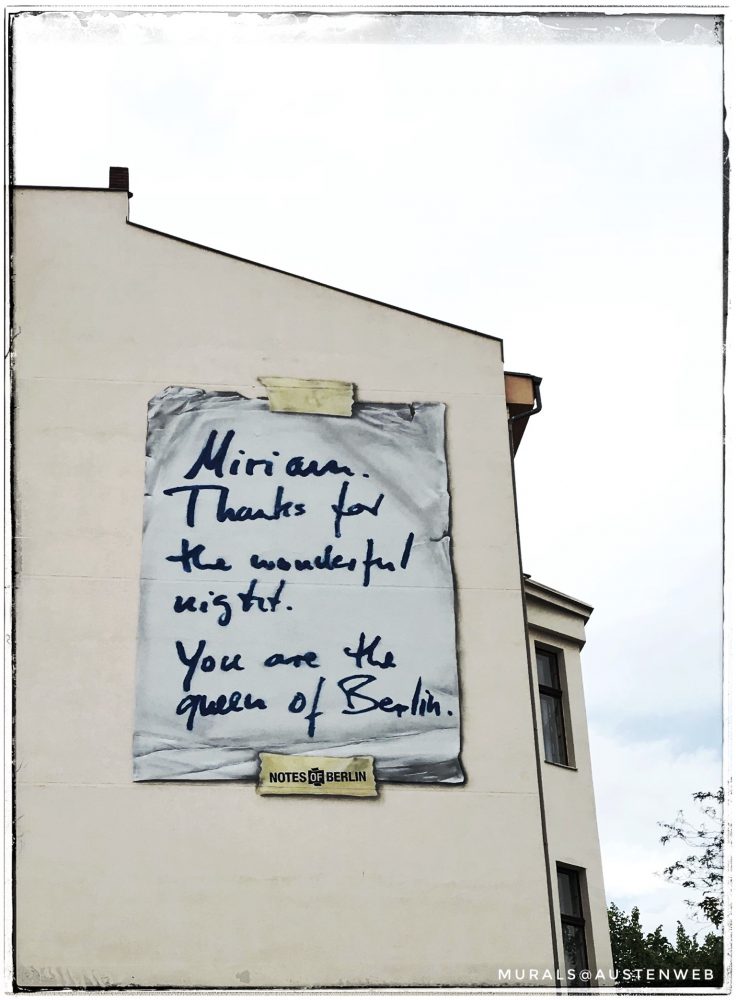 Miriam.
Thanks for
the wonderful
night.
You are the
queen of Berlin.
NOTES OF BERLIN
MURALS@AUSTENWEB